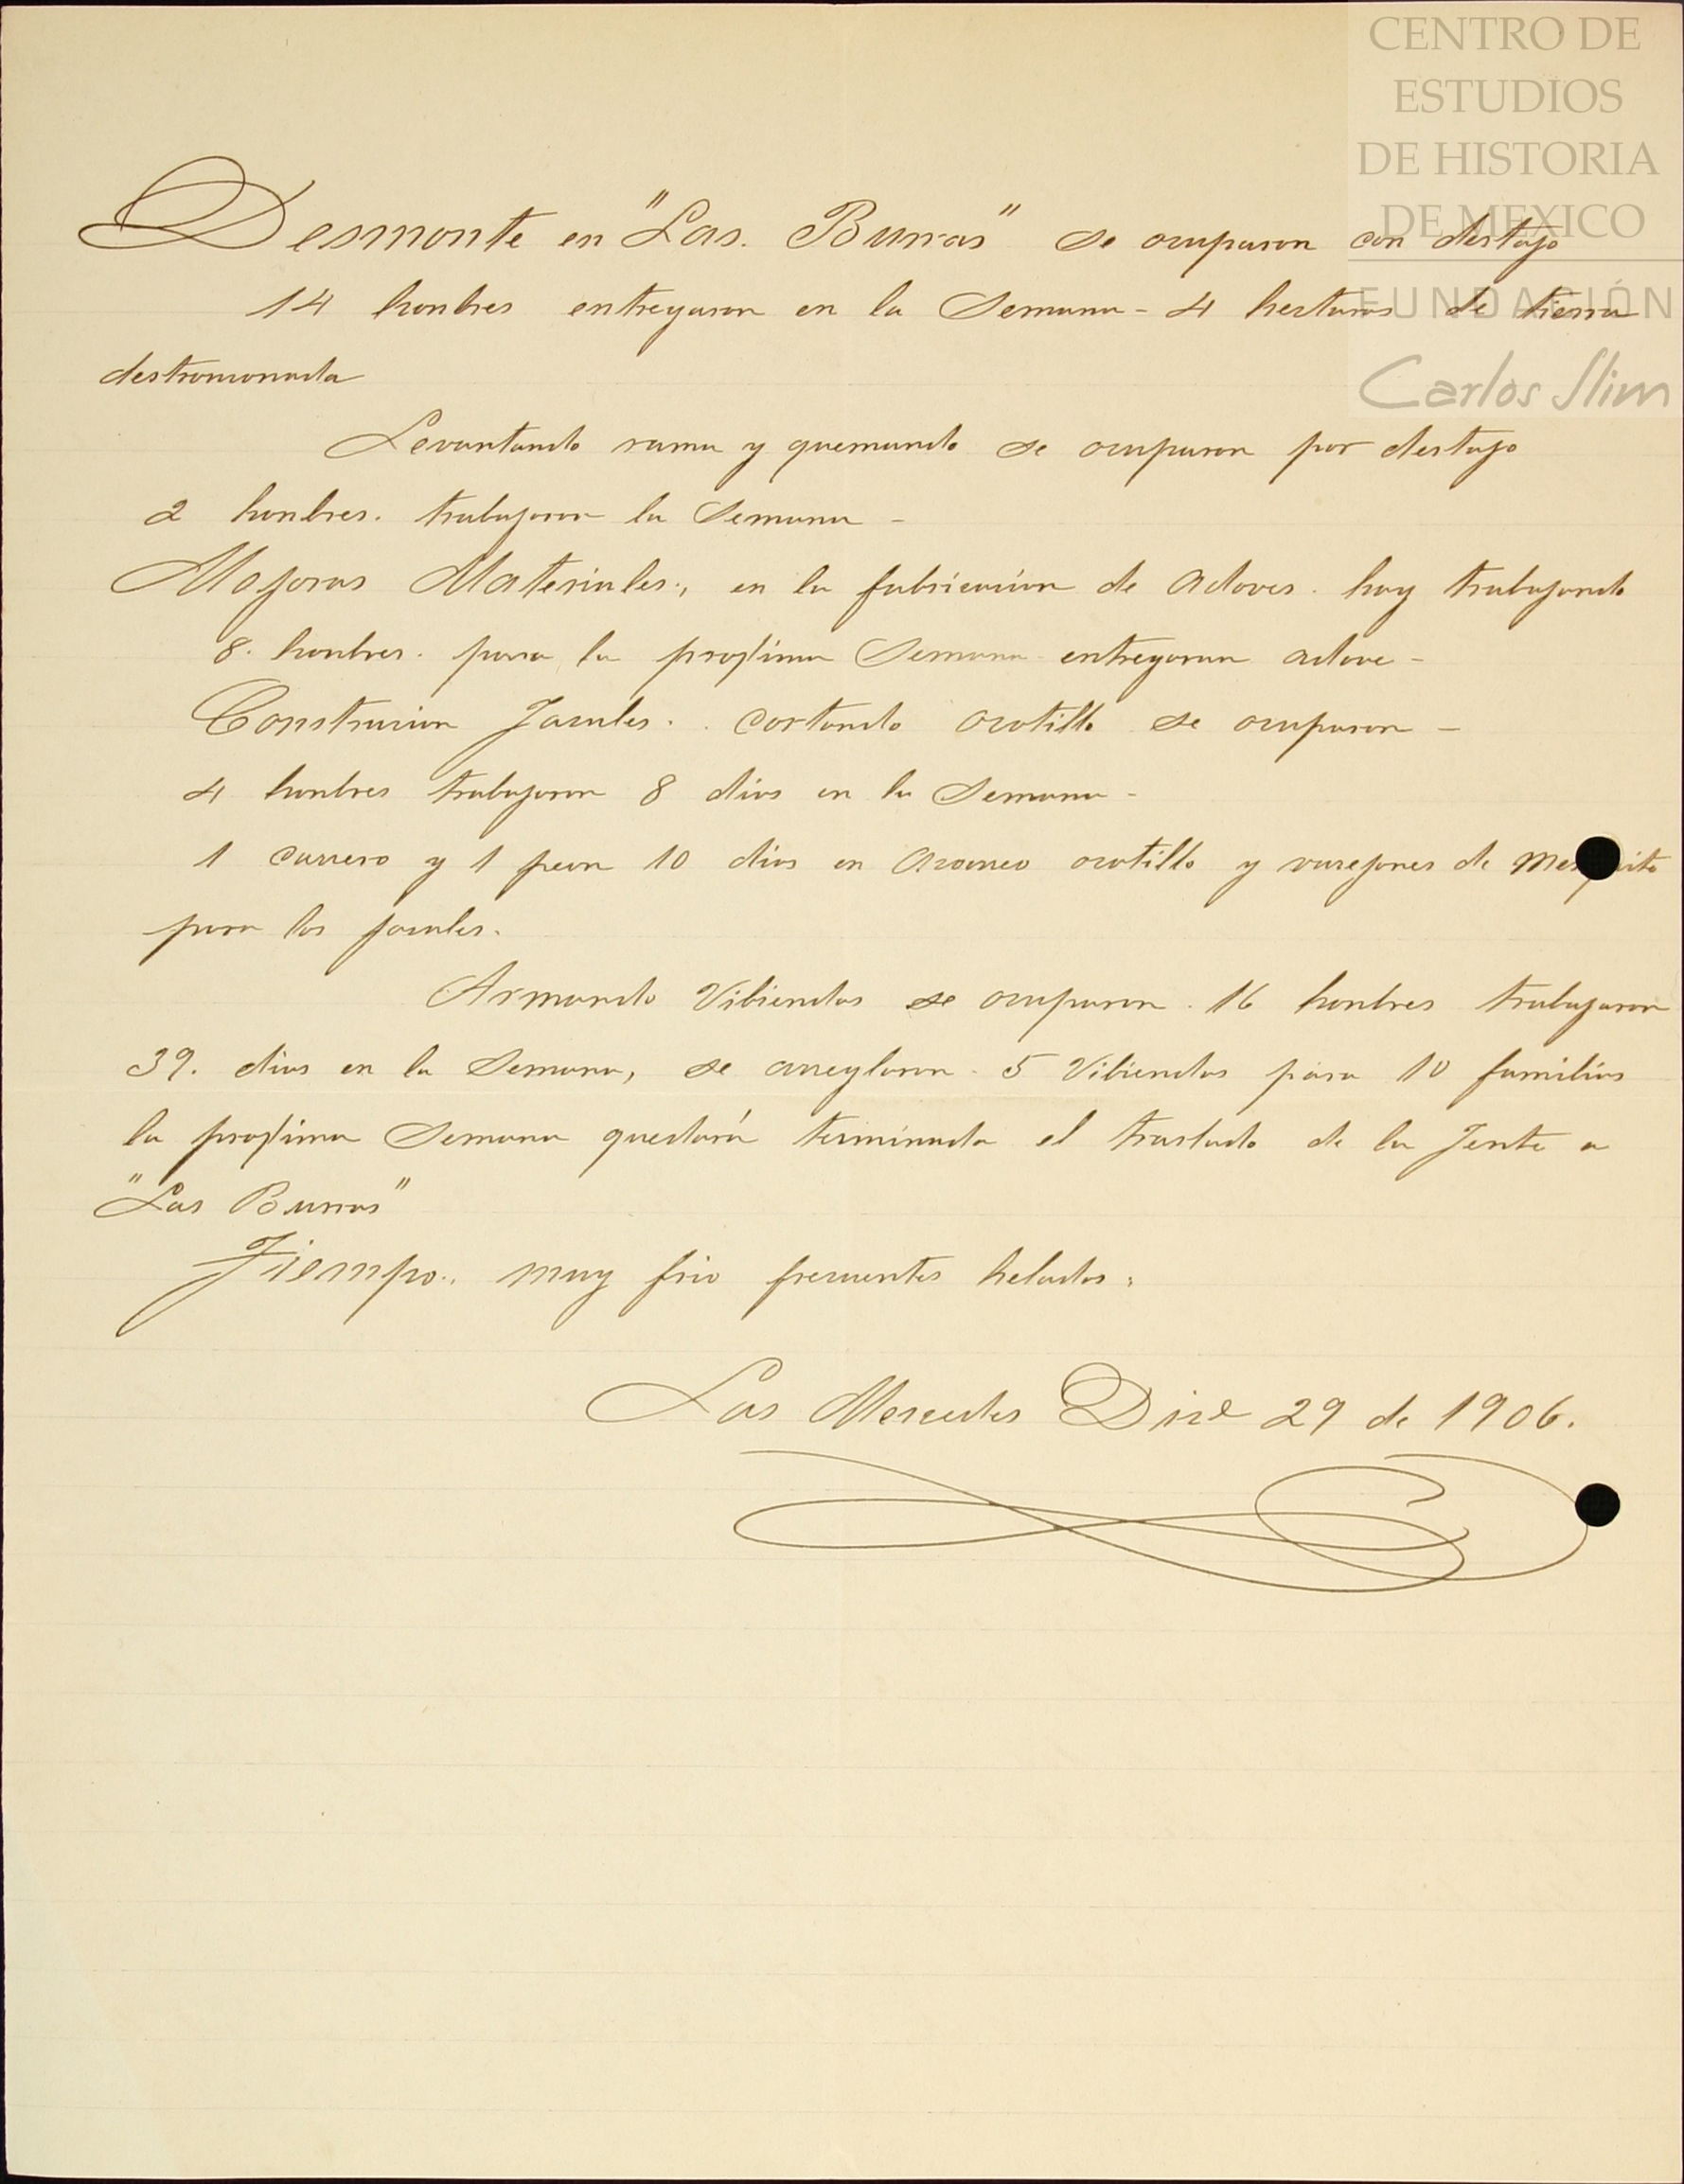 CENTRO DE
ESTUDIOS
DE HISTORIA
DE MEXICO
FUNDACIÓN
Carlos Slim
Desmonte en "Las. Burras" se ocuparon con destajo
14 honbres entregaron en la Semana - 4 hectaras de tierra
destronconada
Levantando rama y quemando se ocuparon por destajo
2 honbres. trabajaron la Semana -
Mejoras Materiales., en la fabricacion de adoves. hay trabajando
8. honbres. para la proxima Semana entregaran adove -
Construcion Jacales. . cortando ocotillo se ocuparon -
4 honbres trabajaron 8 dias en la Semana -
1 carrero y 1 peon 10 dias en acarreo ocotillo y varejones de Mesquite
para los jacales.
Armando Vibiendas se ocuparon. 16 honbres trabajaron
39. dias en la Semana, se arreglaron. 5 Vibiendas para 10 familias
la proxima Semana quedará terminada el traslado de la Jente a
"Las Burras"
Tiempo., muy frio frecuentes heladas.
Las Mercedes Dice 29 de 1906.